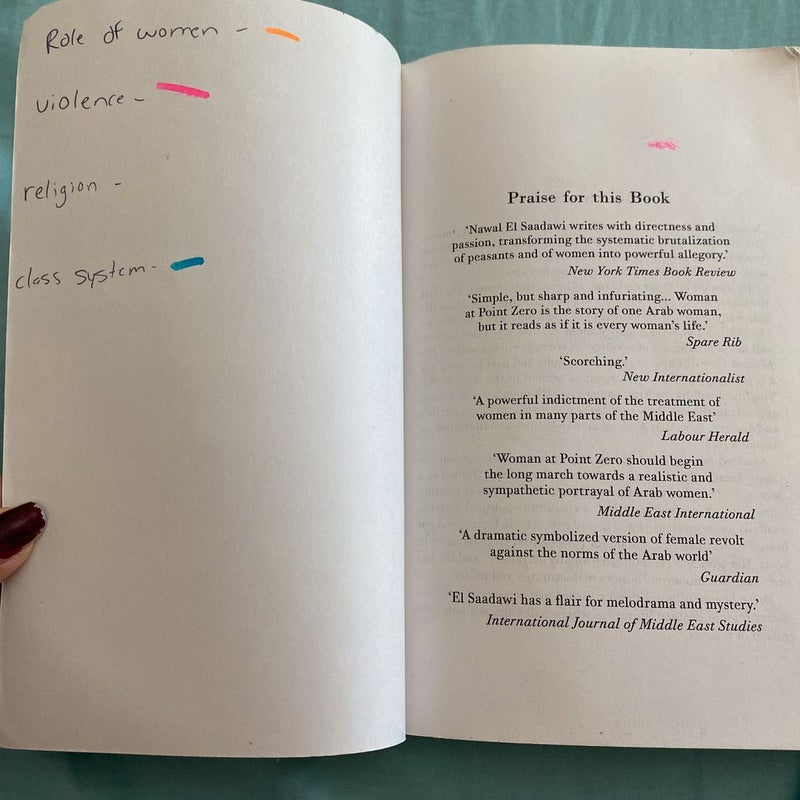 Role of women -
violence -
religion -
class system -
Praise for this Book
‘Nawal El Saadawi writes with directness and
passion, transforming the systematic brutalization
of peasants and of women into powerful allegory.’
New York Times Book Review
‘Simple, but sharp and infuriating... Woman
at Point Zero is the story of one Arab woman,
but it reads as if it is every woman’s life.’
Spare Rib
‘Scorching.’
New Internationalist
‘A powerful indictment of the treatment of
women in many parts of the Middle East’
Labour Herald
‘Woman at Point Zero should begin
the long march towards a realistic and
sympathetic portrayal of Arab women.’
Middle East International
‘A dramatic symbolized version of female revolt
against the norms of the Arab world’
Guardian
‘El Saadawi has a flair for melodrama and mystery.’
International Journal of Middle East Studies